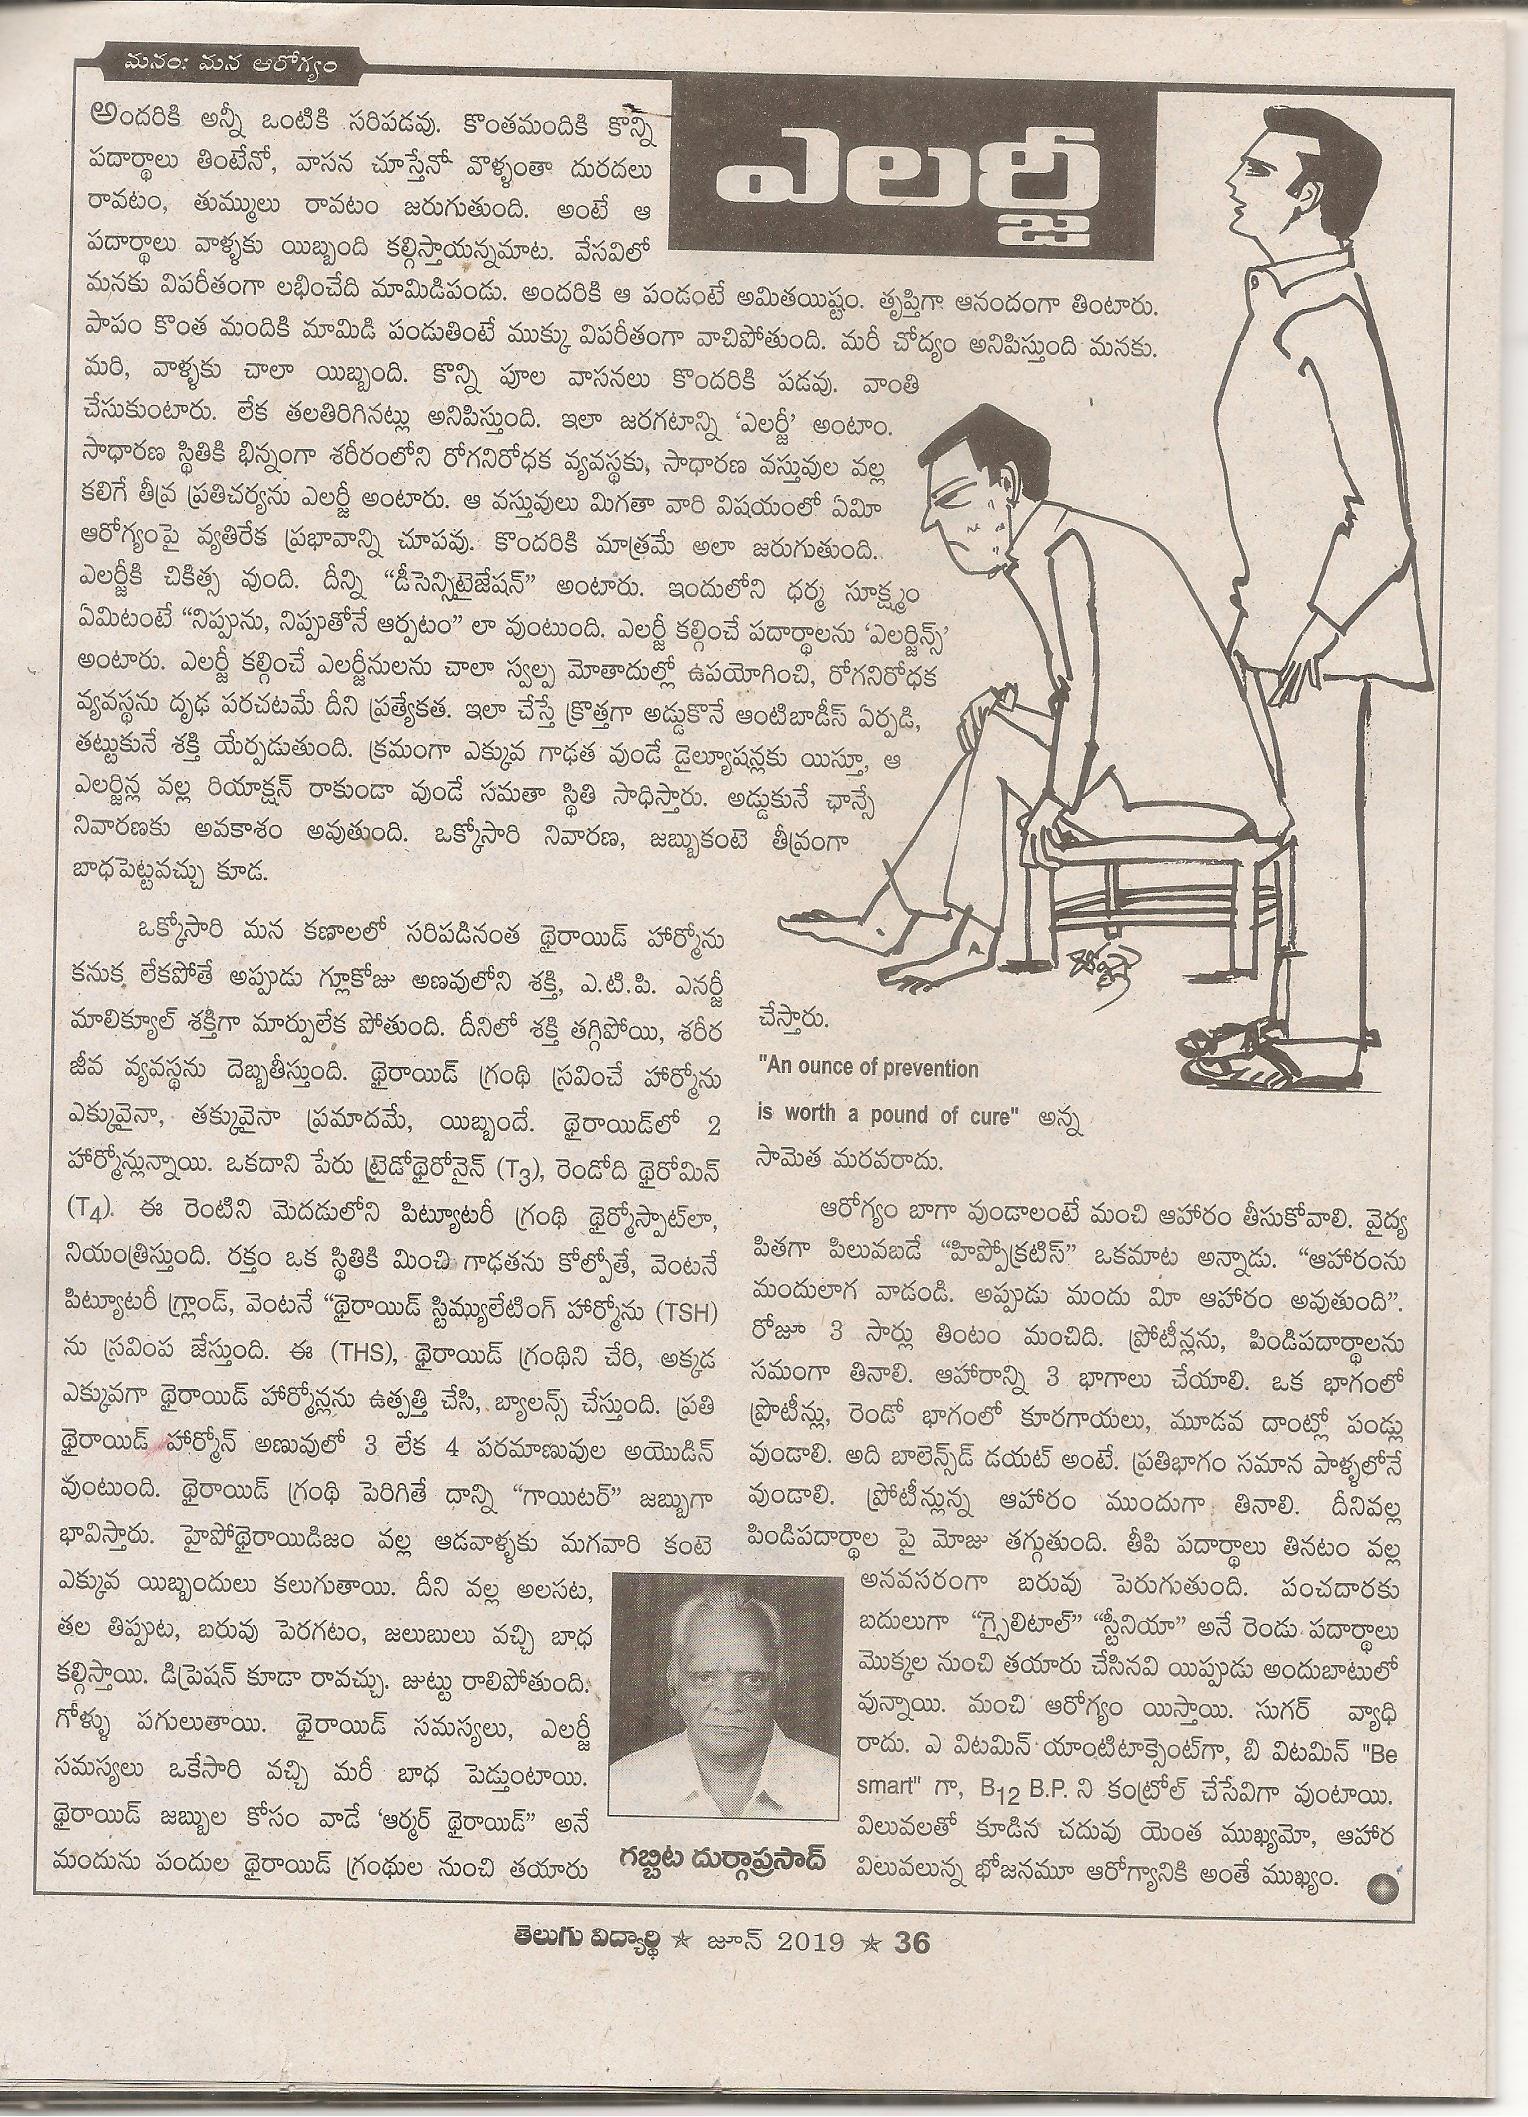 మనం: మన ఆరోగ్యం
ఎలర్జీ
అందరికి అన్నీ ఒంటికి సరిపడవు. కొంతమందికి కొన్ని
పదార్థాలు తింటేనో, వాసన చూస్తేనో వొళ్ళంతా దురదలు
రావటం, తుమ్ములు రావటం జరుగుతుంది. అంటే ఆ
పదార్థాలు వాళ్ళకు యిబ్బంది కల్గిస్తాయన్నమాట. వేసవిలో
మనకు విపరీతంగా లభించేది మామిడిపండు. అందరికి ఆ పండంటే అమితయిష్టం. తృప్తిగా ఆనందంగా తింటారు.
పాపం కొంత మందికి మామిడి పండుతింటే ముక్కు విపరీతంగా వాచిపోతుంది. మరీ చోద్యం అనిపిస్తుంది మనకు.
మరి, వాళ్ళకు చాలా యిబ్బంది. కొన్ని పూల వాసనలు కొందరికి పడవు. వాంతి
చేసుకుంటారు. లేక తలతిరిగినట్లు అనిపిస్తుంది. ఇలా జరగటాన్ని ‘ఎలర్జీ’ అంటాం.
సాధారణ స్థితికి భిన్నంగా శరీరంలోని రోగనిరోధక వ్యవస్థకు, సాధారణ వస్తువుల వల్ల
కలిగే తీవ్ర ప్రతిచర్యను ఎలర్జీ అంటారు. ఆ వస్తువులు మిగతా వారి విషయంలో ఏమీ
ఆరోగ్యంపై వ్యతిరేక ప్రభావాన్ని చూపవు. కొందరికి మాత్రమే అలా జరుగుతుంది.
ఎలర్జీకి చికిత్స వుంది. దీన్ని “డీసెన్సిటైజేషన్” అంటారు. ఇందులోని ధర్మ సూక్ష్మం
ఏమిటంటే “నిప్పును, నిప్పుతోనే ఆర్పటం” లా వుంటుంది. ఎలర్జీ కల్గించే పదార్థాలను ‘ఎలర్జిన్స్’
అంటారు. ఎలర్జీ కల్గించే ఎలర్జీనులను చాలా స్వల్ప మోతాదుల్లో ఉపయోగించి, రోగనిరోధక
వ్యవస్థను దృఢ పరచటమే దీని ప్రత్యేకత. ఇలా చేస్తే క్రొత్తగా అడ్డుకొనే ఆంటిబాడీస్ ఏర్పడి,
తట్టుకునే శక్తి యేర్పడుతుంది. క్రమంగా ఎక్కువ గాఢత వుండే డైల్యూషన్లకు యిస్తూ, ఆ
ఎలర్జిన్ల వల్ల రియాక్షన్ రాకుండా వుండే సమతా స్థితి సాధిస్తారు. అడ్డుకునే ఛాన్సే
నివారణకు అవకాశం అవుతుంది. ఒక్కోసారి నివారణ, జబ్బుకంటె తీవ్రంగా
బాధపెట్టవచ్చు కూడ.
ఒక్కోసారి మన కణాలలో సరిపడినంత థైరాయిడ్ హార్మోను
కనుక లేకపోతే అప్పుడు గ్లూకోజు అణవులోని శక్తి, ఎ.టి.పి. ఎనర్జీ
మాలిక్యూల్ శక్తిగా మార్పులేక పోతుంది. దీనిలో శక్తి తగ్గిపోయి, శరీర
జీవ వ్యవస్థను దెబ్బతీస్తుంది. థైరాయిడ్ గ్రంథి స్రవించే హార్మోను
ఎక్కువైనా, తక్కువైనా ప్రమాదమే, యిబ్బందే. థైరాయిడ్‌లో 2
హార్మోన్లున్నాయి. ఒకదాని పేరు ట్రైడోథైరోనైన్ (T3), రెండోది థైరోమిన్
(T4). ఈ రెంటిని మెదడులోని పిట్యూటరీ గ్రంథి థైర్మోస్పాట్‌లా,
నియంత్రిస్తుంది. రక్తం ఒక స్థితికి మించి గాఢతను కోల్పోతే, వెంటనే
పిట్యూటరీ గ్లాండ్, వెంటనే “థైరాయిడ్ స్టిమ్యులేటింగ్ హార్మోను (TSH)
ను స్రవింప జేస్తుంది. ఈ (THS), థైరాయిడ్ గ్రంథిని చేరి, అక్కడ
ఎక్కువగా థైరాయిడ్ హార్మోన్లను ఉత్పత్తి చేసి, బ్యాలన్స్ చేస్తుంది. ప్రతి
థైరాయిడ్ హార్మోన్ అణువులో 3 లేక 4 పరమాణువుల అయొడిన్
వుంటుంది. థైరాయిడ్ గ్రంథి పెరిగితే దాన్ని “గాయిటర్” జబ్బుగా
భావిస్తారు. హైపోథైరాయిడిజం వల్ల ఆడవాళ్ళకు మగవారి కంటె
ఎక్కువ యిబ్బందులు కలుగుతాయి. దీని వల్ల అలసట,
తల తిప్పుట, బరువు పెరగటం, జలుబులు వచ్చి బాధ
కల్గిస్తాయి. డిప్రెషన్ కూడా రావచ్చు. జుట్టు రాలిపోతుంది.
గోళ్ళు పగులుతాయి. థైరాయిడ్ సమస్యలు, ఎలర్జీ
సమస్యలు ఒకేసారి వచ్చి మరీ బాధ పెడ్తుంటాయి.
థైరాయిడ్ జబ్బుల కోసం వాడే ‘ఆర్మర్ థైరాయిడ్” అనే
మందును పందుల థైరాయిడ్ గ్రంథుల నుంచి తయారు
చేస్తారు.
"An ounce of prevention
is worth a pound of cure" అన్న
సామెత మరవరాదు.
ఆరోగ్యం బాగా వుండాలంటే మంచి ఆహారం తీసుకోవాలి. వైద్య
పితగా పిలువబడే “హిప్పోక్రటిస్” ఒకమాట అన్నాడు. “ఆహారంను
మందులాగ వాడండి. అప్పుడు మందు మీ ఆహారం అవుతుంది”.
రోజూ 3 సార్లు తింటం మంచిది. ప్రోటీన్లను, పిండిపదార్థాలను
సమంగా తినాలి. ఆహారాన్ని 3 భాగాలు చేయాలి. ఒక భాగంలో
ప్రొటీన్లు, రెండో భాగంలో కూరగాయలు, మూడవ దాంట్లో పండ్లు
వుండాలి. అది బాలెన్స్‌డ్ డయట్ అంటే. ప్రతిభాగం సమాన పాళ్ళలోనే
వుండాలి. ప్రోటీన్లున్న ఆహారం ముందుగా తినాలి. దీనివల్ల
పిండిపదార్థాల పై మోజు తగ్గుతుంది. తీపి పదార్థాలు తినటం వల్ల
అనవసరంగా బరువు పెరుగుతుంది. పంచదారకు
బదులుగా “గ్సైలిటాల్” “స్టీనియా” అనే రెండు పదార్థాలు
మొక్కల నుంచి తయారు చేసినవి యిప్పుడు అందుబాటులో
వున్నాయి. మంచి ఆరోగ్యం యిస్తాయి. సుగర్ వ్యాధి
రాదు. ఎ విటమిన్ యాంటిటాక్సెంట్‌గా, బి విటమిన్ "Be
smart" గా, B12 B.P. ని కంట్రోల్ చేసేవిగా వుంటాయి.
విలువలతో కూడిన చదువు యెంత ముఖ్యమో, ఆహార
విలువలున్న భోజనమూ ఆరోగ్యానికి అంతే ముఖ్యం.
గబ్బిట దుర్గాప్రసాద్
తెలుగు విద్యార్థి ★ జూన్ 2019 ★ 36